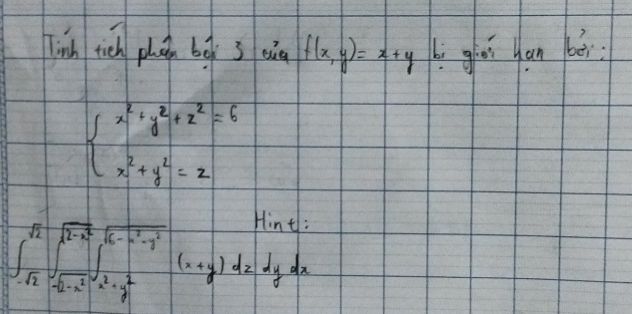 Tính tích phân bội 3 của f(x, y) = x + y bị giới hạn bởi:
{ x² + y² + z² = 6
x² + y² = z
Hint:
∫_{-√2}^{√2} ∫_{-√(2-x²)}^{√(2-x²)} ∫_{x²+y²}^{√(6-x²-y²)} (x+y) dz dy dx